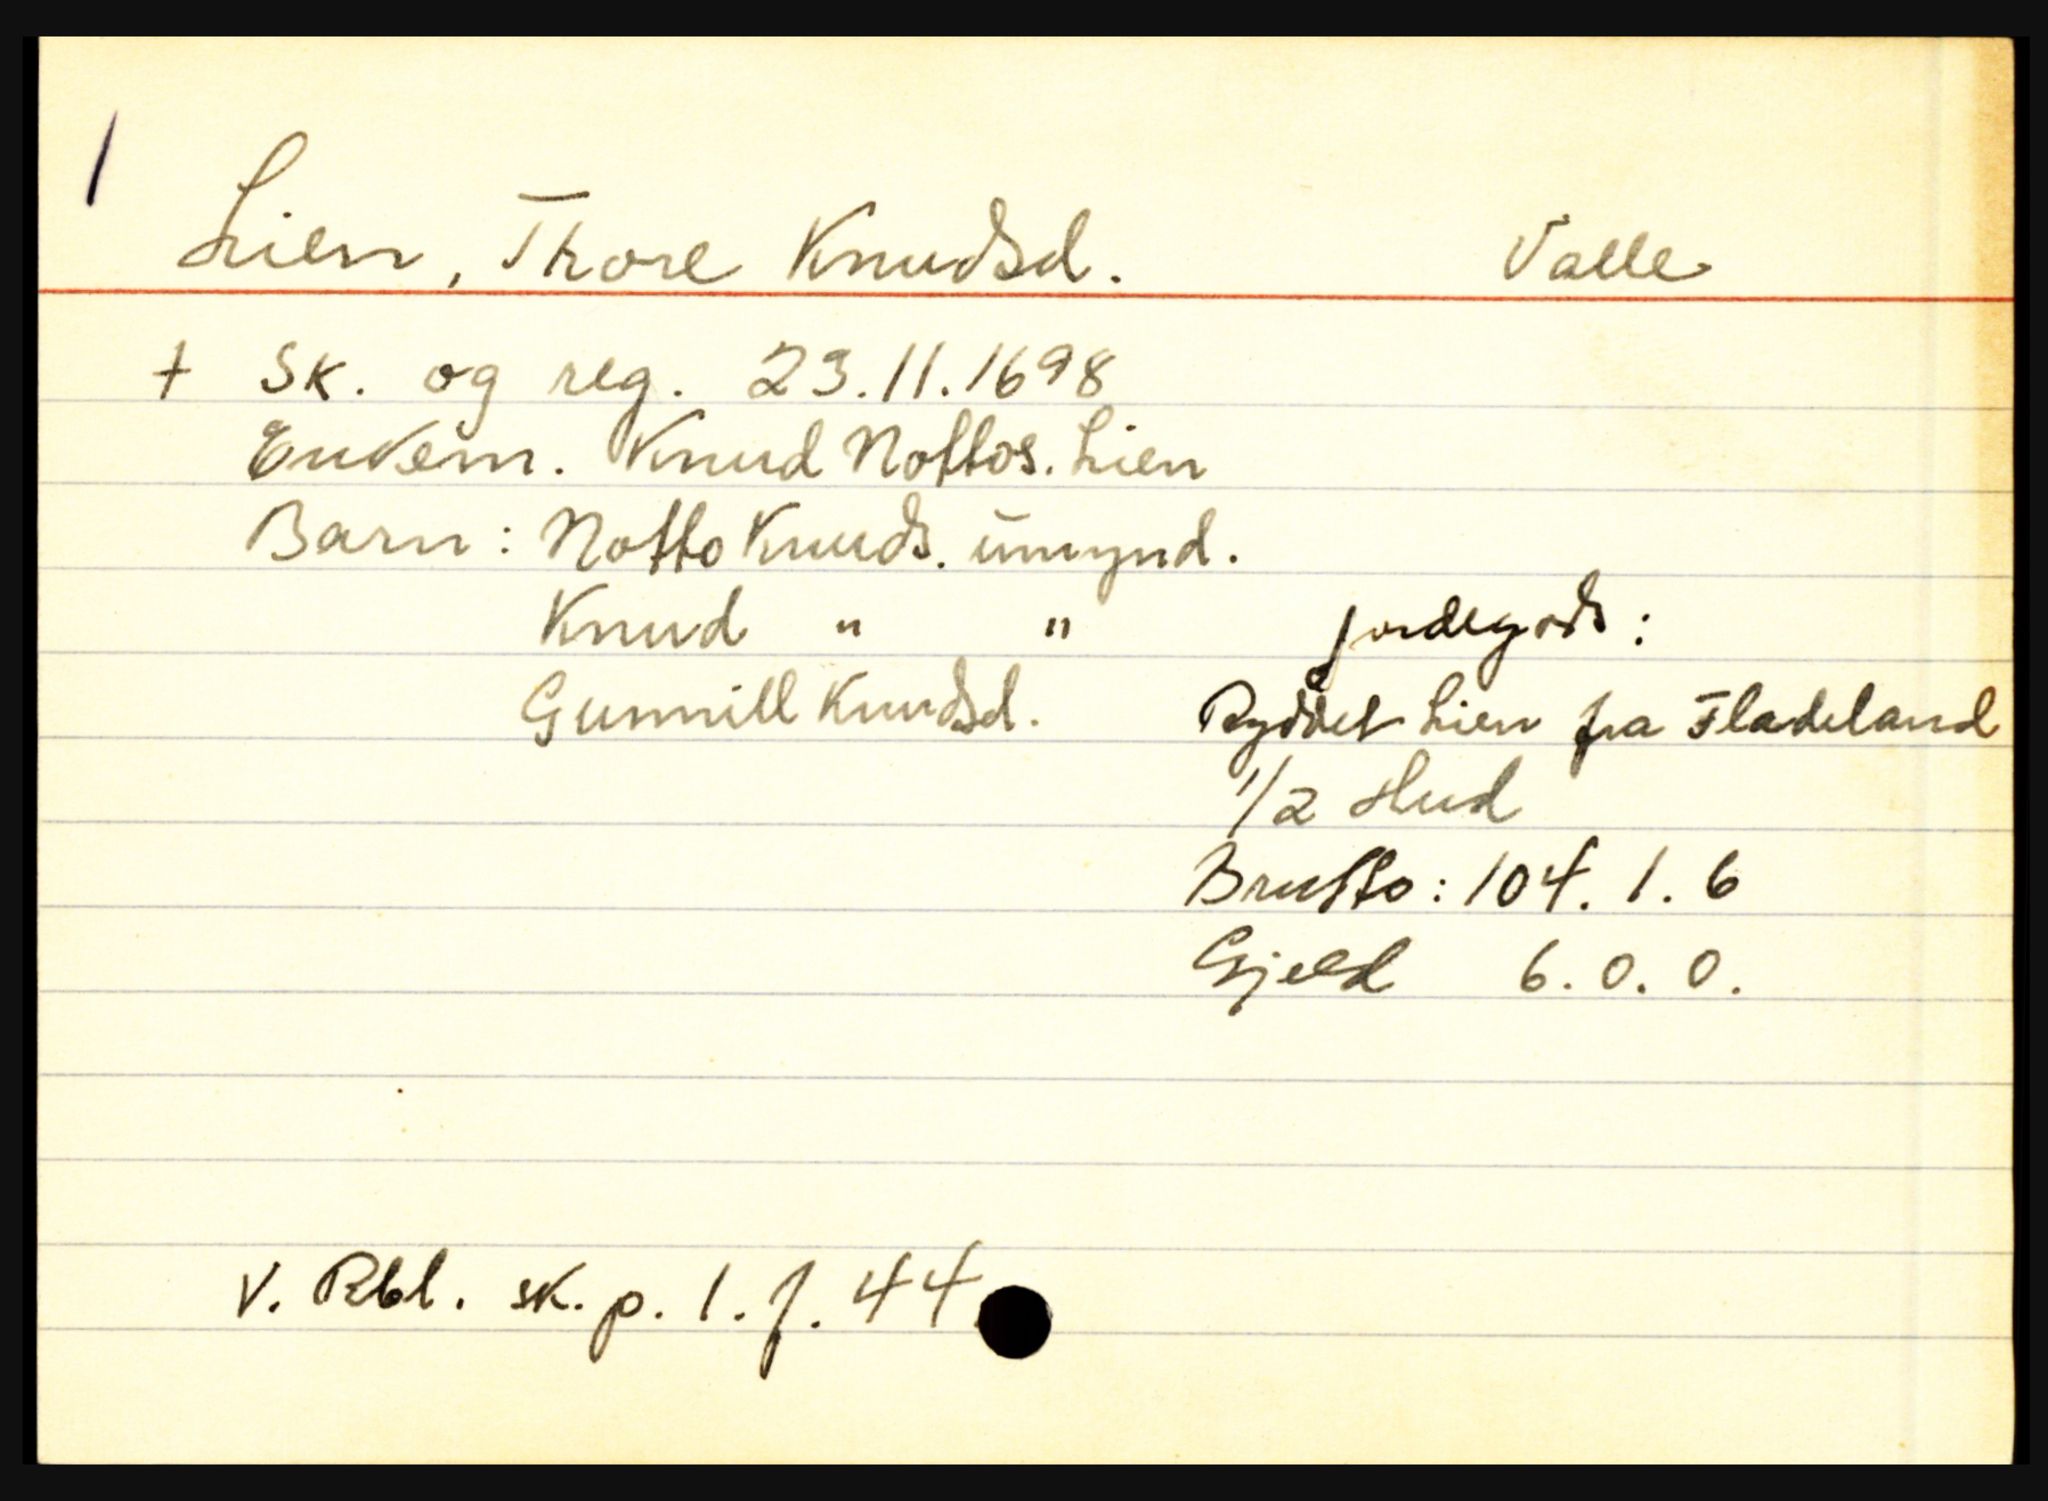 1
Lien, Thore Knudsd. Valle
+ Sk. og reg. 23.11.1698
Enkem. Knud Nottos. Lien
Barn: Notto Knuds. umynd.
Knud " "
Gunnill Knudsd.
Jordegods:
Ryddet Lien fra Fladeland
1/2 Hud
Brutto: 104. 1. 6
Gjeld 6. 0. 0.
V. Rbl. sk. p. 1. f. 44